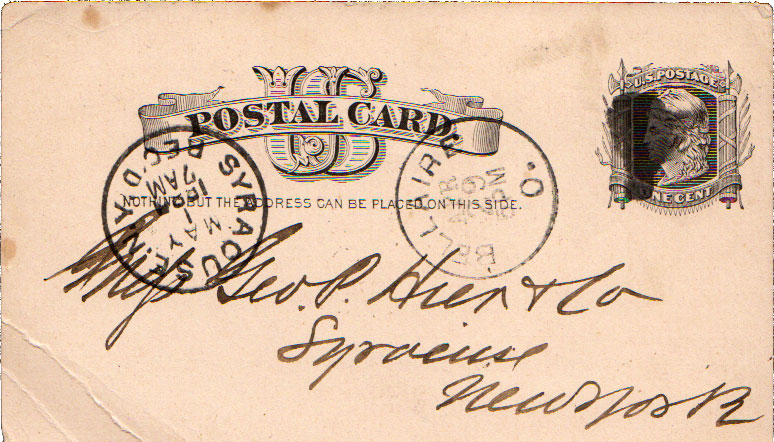 US
POSTAL CARD
U.S. POSTAGE
ONE CENT
NOTHING BUT THE ADDRESS CAN BE PLACED ON THIS SIDE.
SYRACUSE N.Y.
REC'D
MAY
AM
BELLAIRE O.
Geo. P. Hier & Co
Syracuse
New York